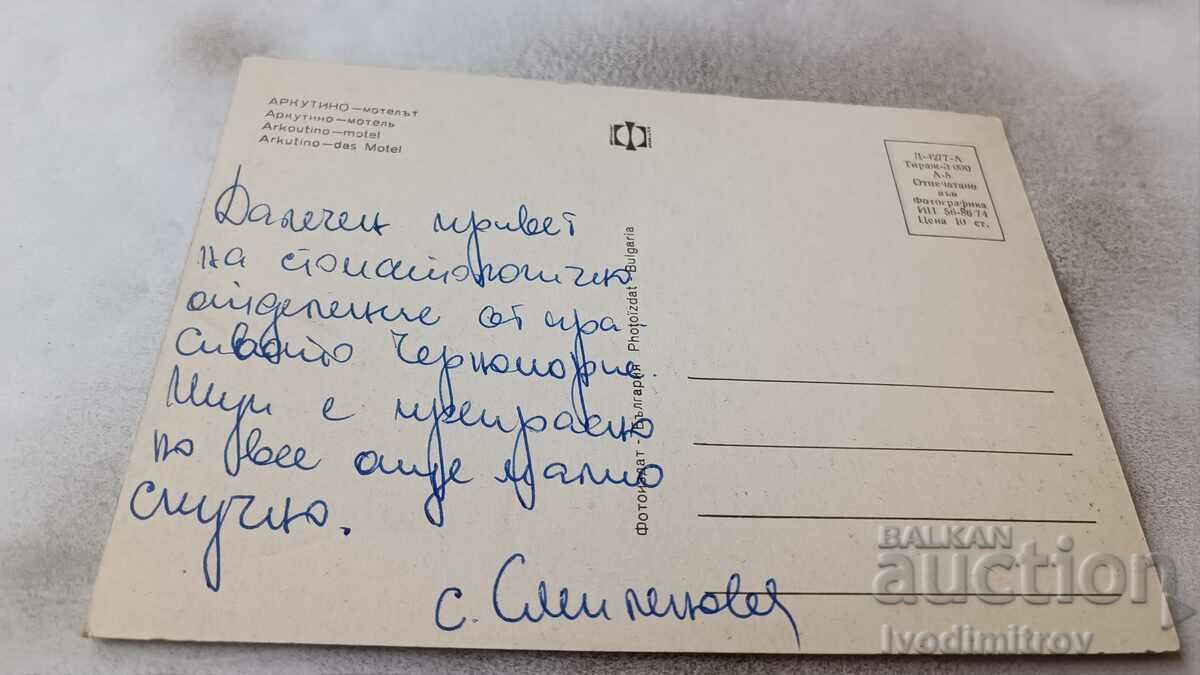 АРКУТИНО — мотелът
Аркутино — мотель
Arkoutino — motel
Arkutino — das Motel
Д-4277-А
Тираж-3 000
А-8
Отпечатано
във
Фотографика
ИП 56-86/74
Цена 10 ст.
Далечен привет
на стоматологично
отделение от кра-
сивото Черноморие.
Тук е прекрасно
но все още малко
скучно.
с.
Фотоиздат - България Photoizdat - Bulgaria
BALKAN
auction
Ivodimitrov